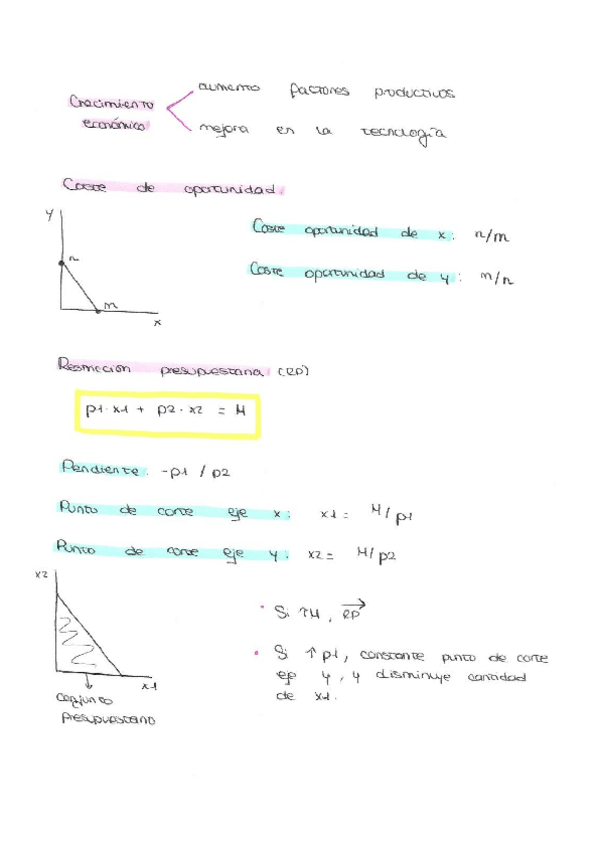 aumento factores productivos
Crecimiento
económico
mejora en la tecnología
Coste de oportunidad.
y
n
m
x
Coste oportunidad de x: n/m
Coste oportunidad de y: m/n
Restricción presupuestaria (RP)
p1·x1 + p2·x2 = M
Pendiente: -p1 / p2
Punto de corte eje x: x1 = M/p1
Punto de corte eje y: x2 = M/p2
x2
x1
conjunto
presupuestario
· Si ↑M, RP→
· Si ↑p1, constante punto de corte
eje y, y disminuye cantidad
de x1.